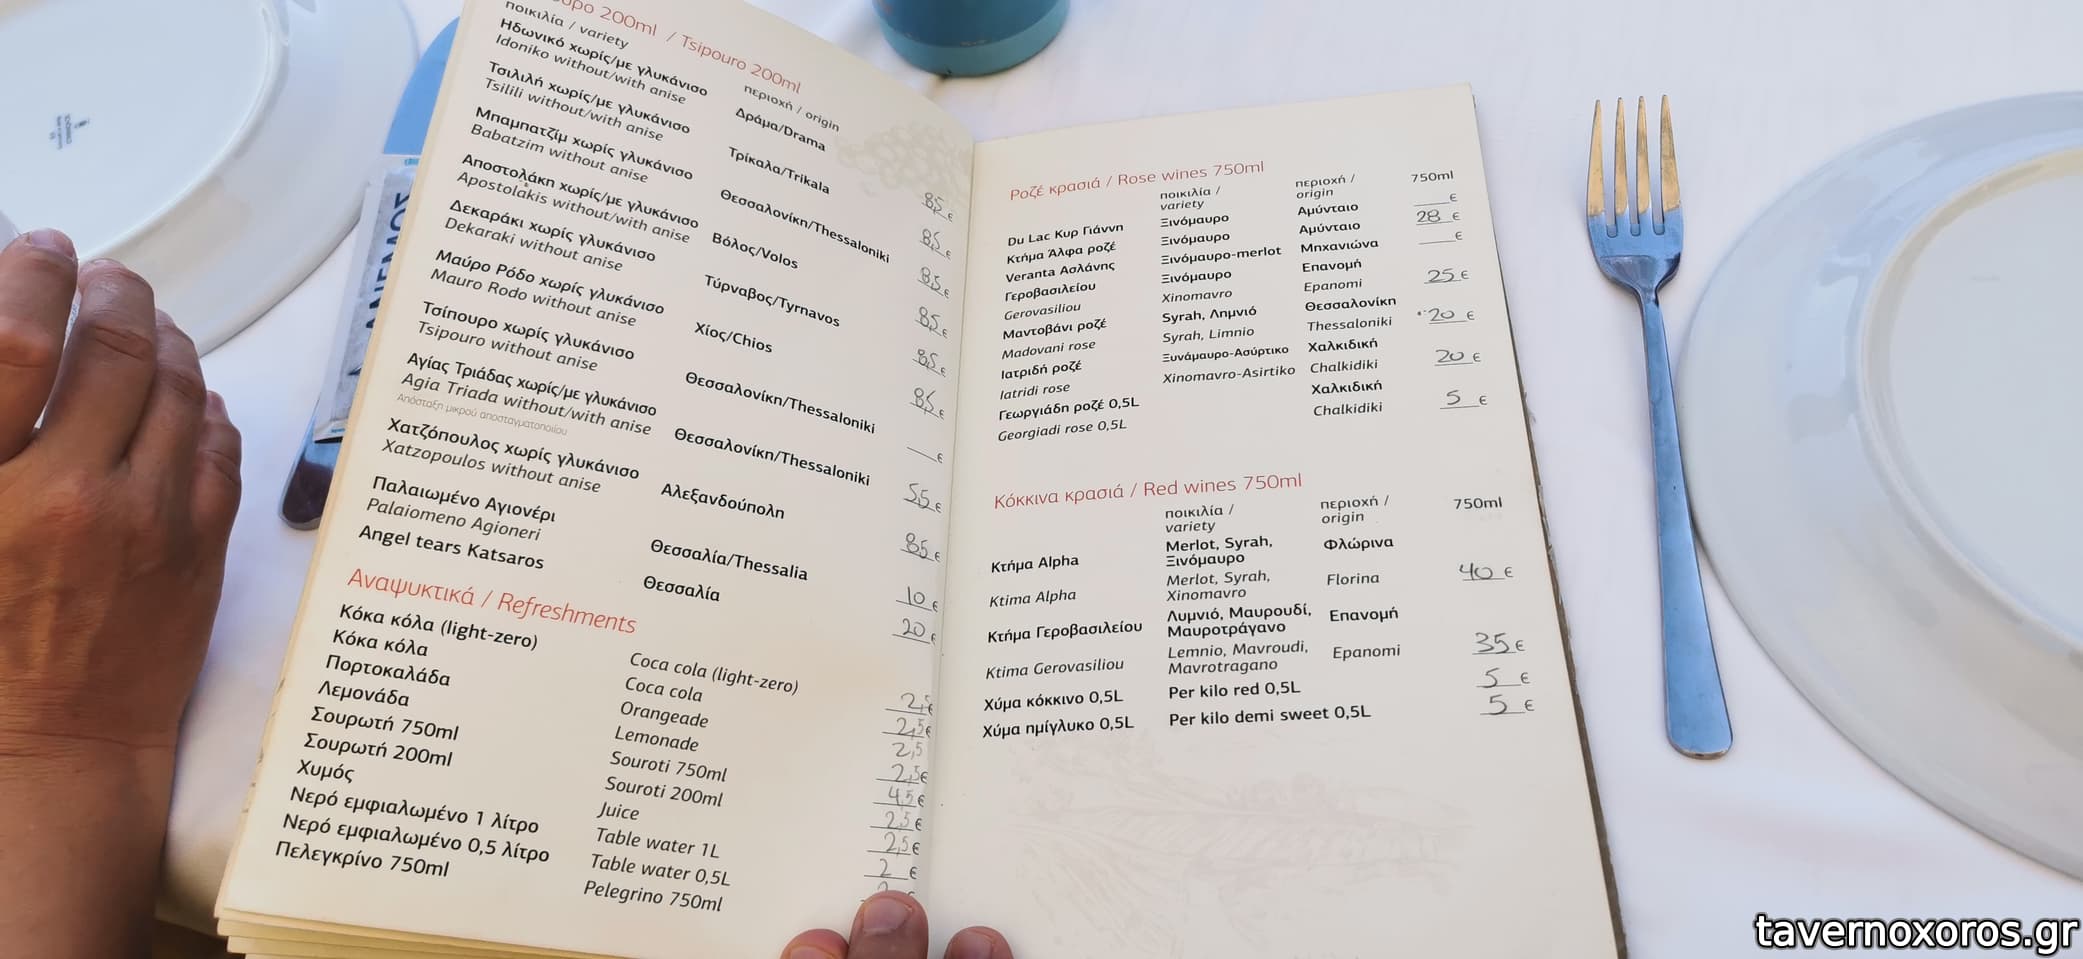 ουρο 200ml / Tsipouro 200ml
ποικιλία / variety περιοχή / origin
Ηδωνικό χωρίς/με γλυκάνισο Δράμα/Drama 8,5 €
Idoniko without/with anise
Τσιλιλή χωρίς/με γλυκάνισο Τρίκαλα/Trikala 8,5 €
Tsilili without/with anise
Μπαμπατζίμ χωρίς γλυκάνισο Θεσσαλονίκη/Thessaloniki 8,5 €
Babatzim without anise
Αποστολάκη χωρίς/με γλυκάνισο Βόλος/Volos 8,5 €
Apostolakis without/with anise
Δεκαράκι χωρίς γλυκάνισο Τύρναβος/Tyrnavos 8,5 €
Dekaraki without anise
Μαύρο Ρόδο χωρίς γλυκάνισο Χίος/Chios 8,5 €
Mauro Rodo without anise
Τσίπουρο χωρίς γλυκάνισο Θεσσαλονίκη/Thessaloniki €
Tsipouro without anise
Αγίας Τριάδας χωρίς/με γλυκάνισο Θεσσαλονίκη/Thessaloniki 5,5 €
Agia Triada without/with anise
Απόσταξη μικρού αποσταγματοποιίου
Χατζόπουλος χωρίς γλυκάνισο Αλεξανδούπολη 8,5 €
Xatzopoulos without anise
Παλαιωμένο Αγιονέρι Θεσσαλία/Thessalia 10 €
Palaiomeno Agioneri
Angel tears Katsaros Θεσσαλία 20 €
Αναψυκτικά / Refreshments
Κόκα κόλα (light-zero) Coca cola (light-zero) 2,5 €
Κόκα κόλα Coca cola 2,5 €
Πορτοκαλάδα Orangeade 2,5
Λεμονάδα Lemonade 2,5 €
Σουρωτή 750ml Souroti 750ml 4,5 €
Σουρωτή 200ml Souroti 200ml 2,5 €
Χυμός Juice 2,5 €
Νερό εμφιαλωμένο 1 λίτρο Table water 1L 2 €
Νερό εμφιαλωμένο 0,5 λίτρο Table water 0,5L
Πελεγκρίνο 750ml Pelegrino 750ml
Ροζέ κρασιά / Rose wines 750ml
ποικιλία / variety περιοχή / origin 750ml
Du Lac Κυρ Γιάννη Ξινόμαυρο Αμύνταιο €
Κτήμα Άλφα ροζέ Ξινόμαυρο Αμύνταιο 28 €
Veranta Ασλάνης Ξινόμαυρο-merlot Μηχανιώνα €
Γεροβασιλείου Ξινόμαυρο Επανομή 25 €
Gerovasiliou Xinomavro Epanomi
Μαντοβάνι ροζέ Syrah, Λημνιό Θεσσαλονίκη 20 €
Madovani rose Syrah, Limnio Thessaloniki
Ιατριδή ροζέ Ξυνάμαυρο-Ασύρτικο Χαλκιδική 20 €
Iatridi rose Xinomavro-Asirtiko Chalkidiki
Γεωργιάδη ροζέ 0,5L Χαλκιδική 5 €
Georgiadi rose 0,5L Chalkidiki
Κόκκινα κρασιά / Red wines 750ml
ποικιλία / variety περιοχή / origin 750ml
Κτήμα Alpha Merlot, Syrah, Ξινόμαυρο Φλώρινα
Ktima Alpha Merlot, Syrah, Xinomavro Florina 40 €
Κτήμα Γεροβασιλείου Λυμνιό, Μαυρουδί, Μαυροτράγανο Επανομή
Ktima Gerovasiliou Lemnio, Mavroudi, Mavrotragano Epanomi 35 €
Χύμα κόκκινο 0,5L Per kilo red 0,5L 5 €
Χύμα ημίγλυκο 0,5L Per kilo demi sweet 0,5L 5 €
tavernoxoros.gr